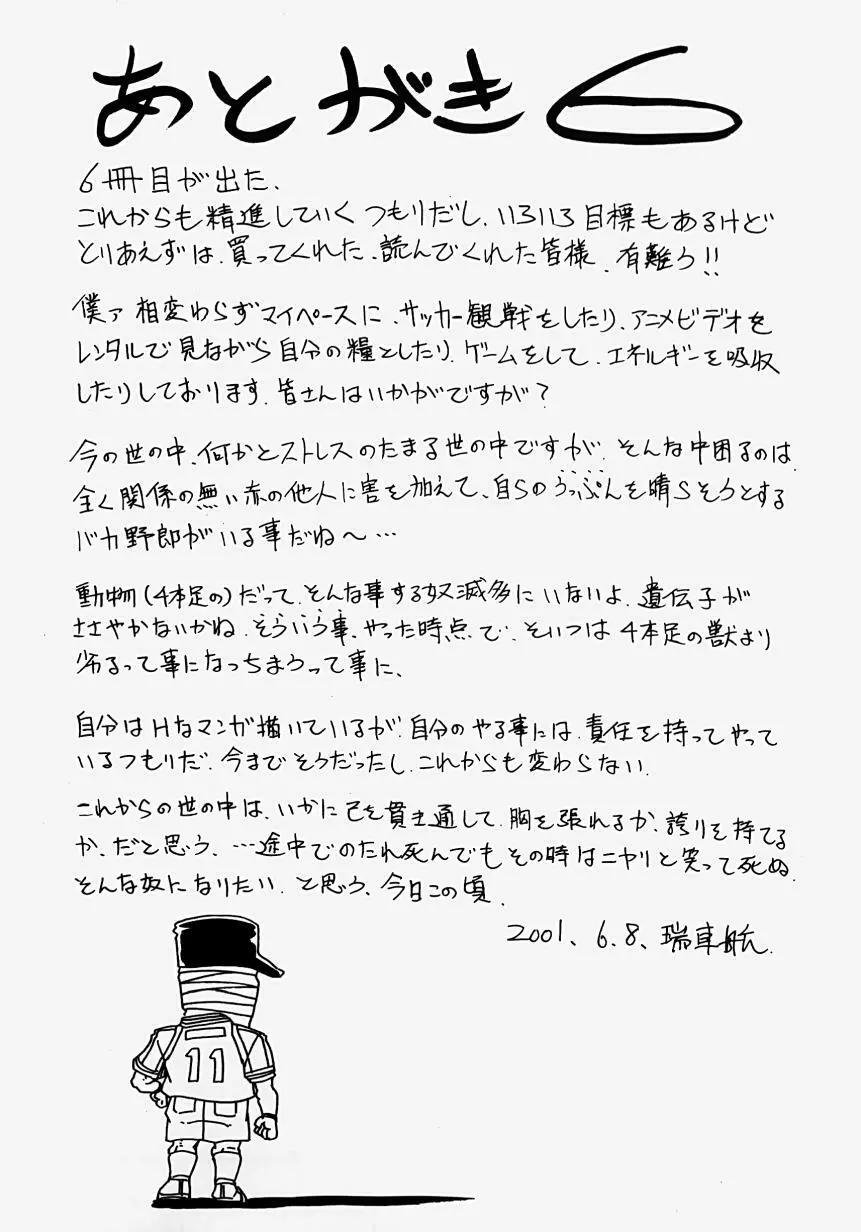 あとがき6
6冊目が出た、
これからも精進していくつもりだし、いろいろ目標もあるけど
とりあえずは、買ってくれた、読んでくれた皆様、有難う!!
僕ァ相変わらずマイペースに、サッカー観戦をしたり、アニメビデオを
レンタルで見ながら自分の糧としたり、ゲームをして、エネルギーを吸収
したりしております。皆さんはいかがですか?
今の世の中、何かとストレスのたまる世の中ですが、そんな中困るのは、
全く関係の無い赤の他人に害を加えて、自らのうっぷんを晴らそうとする
バカ野郎がいる事だね〜…
動物(4本足の)だって、そんな事する奴滅多にいないよ、遺伝子が
ささやかないかね、そういう事、やった時点で、そいつは4本足の獣より
劣るって事になっちまうって事に、
自分はHなマンガ描いているが、自分のやる事には、責任を持ってやって
いるつもりだ、今までそうだったし、これからも変わらない、
これからの世の中は、いかに己を貫き通して、胸を張れるか、誇りを持てる
か、だと思う、…途中でのたれ死んでもその時はニヤリと笑って死ぬ、
そんな奴になりたい、と思う、今日この頃、
2001、6.8、瑞車航、
11